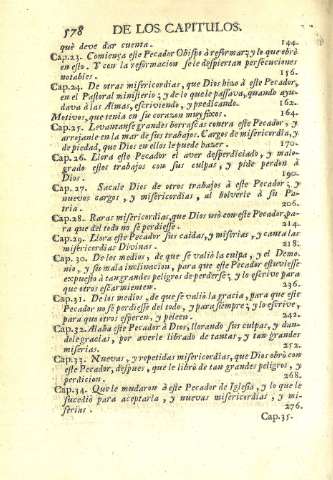 578 DE LOS CAPITULOS.
què deve dar cuenta. 144.
Cap.23. Comiença este Pecador Obispo à reformar; y lo que obrò
en esto. Y con la reformacion se le despiertan persecuciones
notables. 156.
Cap.24. De otras misericordias, que Dios hizo à este Pecador,
en el Pastoral ministerio; y de lo que passava, quando ayu-
dava à las Almas, escriviendo, y predicando. 162.
Motivos, que tenia en su corazon muy fixos. 164.
Cap.25. Levantanse grandes borrascas contra este Pecador, y
arrojante en la mar de sus trabajos. Cargos de misericordia, y
de piedad, que Dios en ellos le puede hazer. 170.
Cap.26. Llora este Pecador el aver desperdiciado, y malo-
grado estos trabajos con sus culpas, y pide perdon à
Dios. 190.
Cap.27. Sacale Dios de otros trabajos à este Pecador; y
nuevos cargos, y misericordias, al bolverle à su Pa-
tria. 206.
Cap.28. Raras misericordias, que Dios usò con este Pecador, pa-
ra que del todo no se perdiesse. 214.
Cap.29. Llora este Pecador sus caidas, y miserias, y canta las
misericordias Divinas. 218.
Cap.30. De los medios, de que se valiò la culpa, y el Demo-
nio, y su mala inclinacion, para que este Pecador estuviesse
expuesto à tan grandes peligros de perderse; y lo escrive para
que otros escarmienten. 236.
Cap.31. De los medios, de que se valiò la gracia, para que este
Pecador no se perdiesse del todo, y para siempre; y lo escrive,
para que otros esperen, y peleen. 242.
Cap.32. Alaba este Pecador à Dios, llorando sus culpas, y dan-
dole gracias, por averle librado de tantas, y tan grandes
miserias. 252.
Cap.33. Nuevas, y repetidas misericordias, que Dios obrò con
este Pecador, despues, que le librò de tan grandes peligros, y
perdicion. 268.
Cap.34. Que le mudaron à este Pecador de Iglesia, y lo que le
sucediò para aceptarla, y nuevas misericordias, y mi-
serias. 276.
Cap.35.